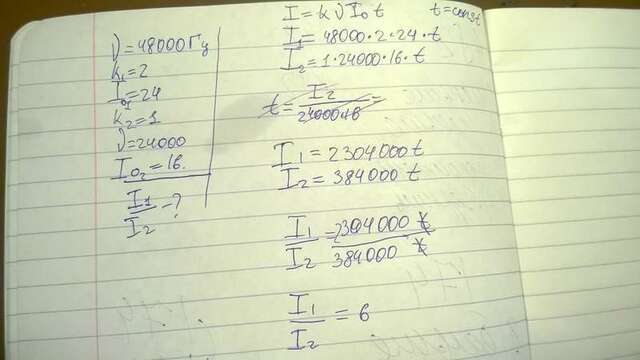 ν=48000Гц
k₁=2
I₀₁=24
k₂=1
ν=24000
I₀₂=16.
I₁/I₂ -?
I=kνI₀t t=const
I₁=48000·2·24·t
I₂=1·24000·16·t
t=I₂/24000·16=
I₁=2304000t
I₂=384000t
I₁/I₂=2304000t/384000t
I₁/I₂=6